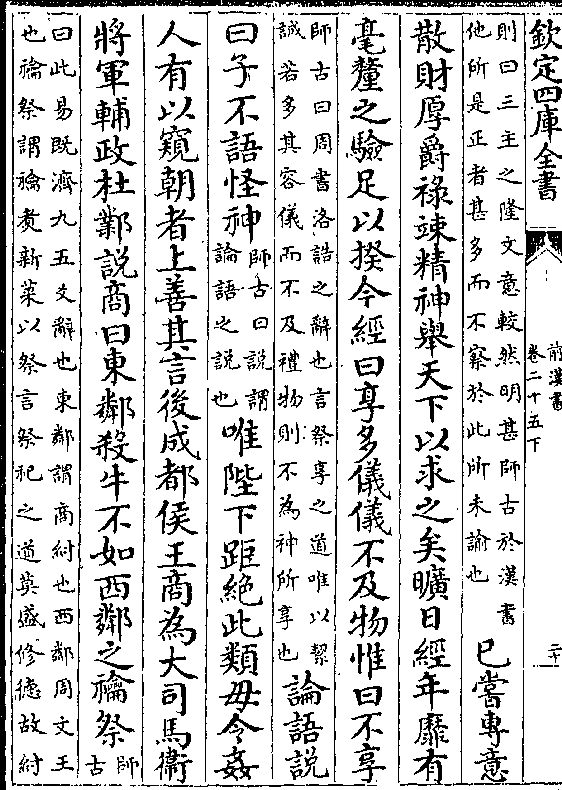 欽定四庫全書
前漢書
卷二十五下
二十
則曰三主之隆文意較然明甚師古於漢書
他所是正者甚多而不察於此所未諭也
已嘗專意
散財厚爵祿竦精神舉天下以求之矣曠日經年靡有
毫釐之驗足以揆今經曰享多儀儀不及物惟曰不享
師古曰周書洛誥之辭也言祭享之道唯以絜
誠若多其容儀而不及禮物則不為神所享也
論語說
曰子不語怪神
師古曰說謂
論語之說也
唯陛下距絕此類毋令姦
人有以窺朝者上善其言後成都侯王商為大司馬衛
將軍輔政杜鄴說商曰東鄰殺牛不如西鄰之禴祭
師
古
曰此易既濟九五爻辭也東鄰謂商紂也西鄰周文王
也禴祭謂禴煑新菜以祭言祭祀之道莫盛修德故紂